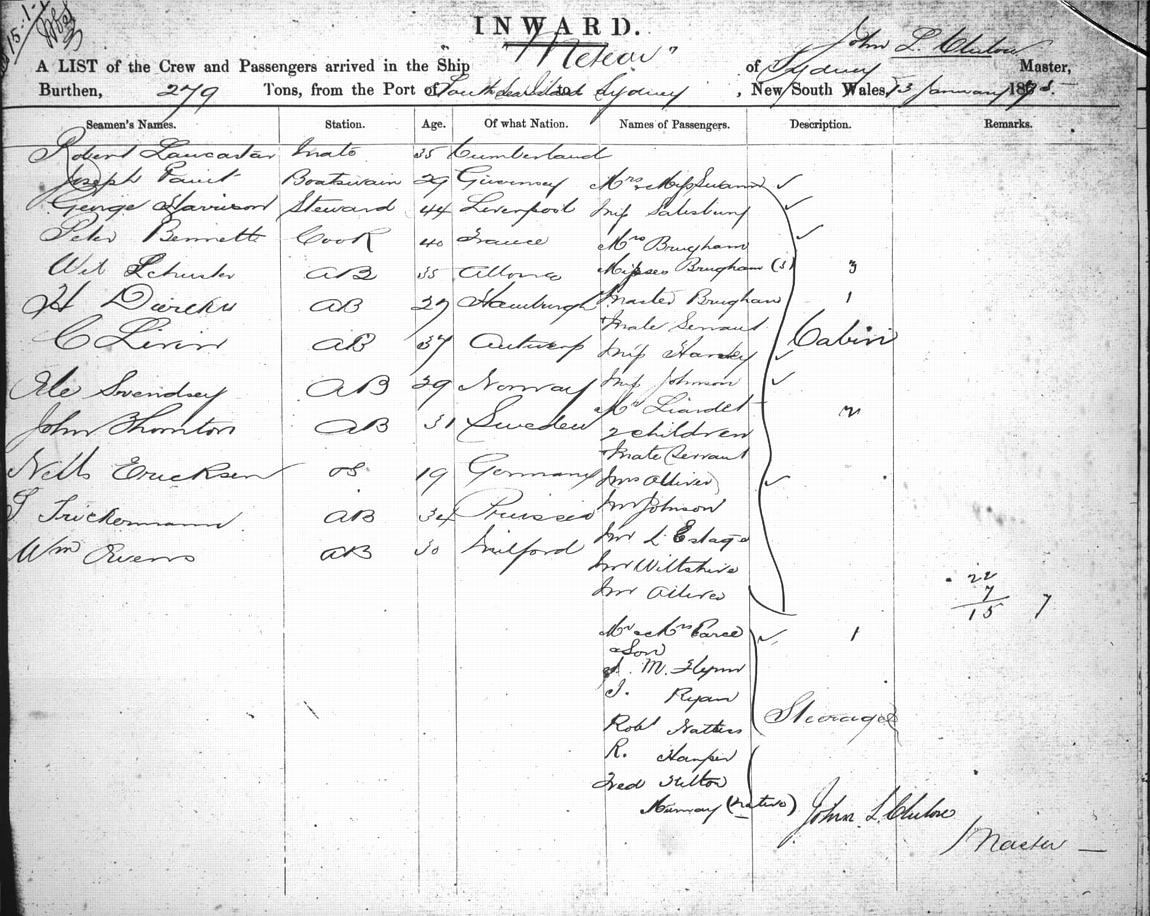 15-1-
INWARD.
A LIST of the Crew and Passengers arrived in the Ship "Meteor" of Sydney John L. Clulow Master,
Burthen, 279 Tons, from the Port of South Sea Islands to Sydney, New South Wales, 13 January 1873.
Seamen's Names. Station. Age. Of what Nation. Names of Passengers. Description. Remarks.
Robert Lancaster Mate 35 Cumberland
Joseph 29 Boatswain Guernsey Mrs & Miss Swann
George Harrison Steward 44 Liverpool Miss Salisbury
Peter Bennette Cook 40 France Mrs Brugham
Schuster AB 35 Altona Misses Brugham (3) 3
H AB 27 Hamburgh Master Brugham 1
Male Servant Cabin
C AB 37 Antwerp Miss
Ole Svendsey AB 29 Norway Miss Johnson
Mr Liardet
John Thornton AB 31 Sweden 2 children 2
Male Servant
Nells Ericksen OS 19 Germany Mrs Olliver
Mr Johnson
AB 34 Prussia
Mr L Estage
Wm Owens AB 30 Milford
Mr Wiltshire
Mr Olliver
22
7
15 7
Mr & Mrs 1
& Son
M. Flynn
J. Ryan
Robt Steerage
R. Harper
Fred Hilton
(Native)
John L. Clulow
Master